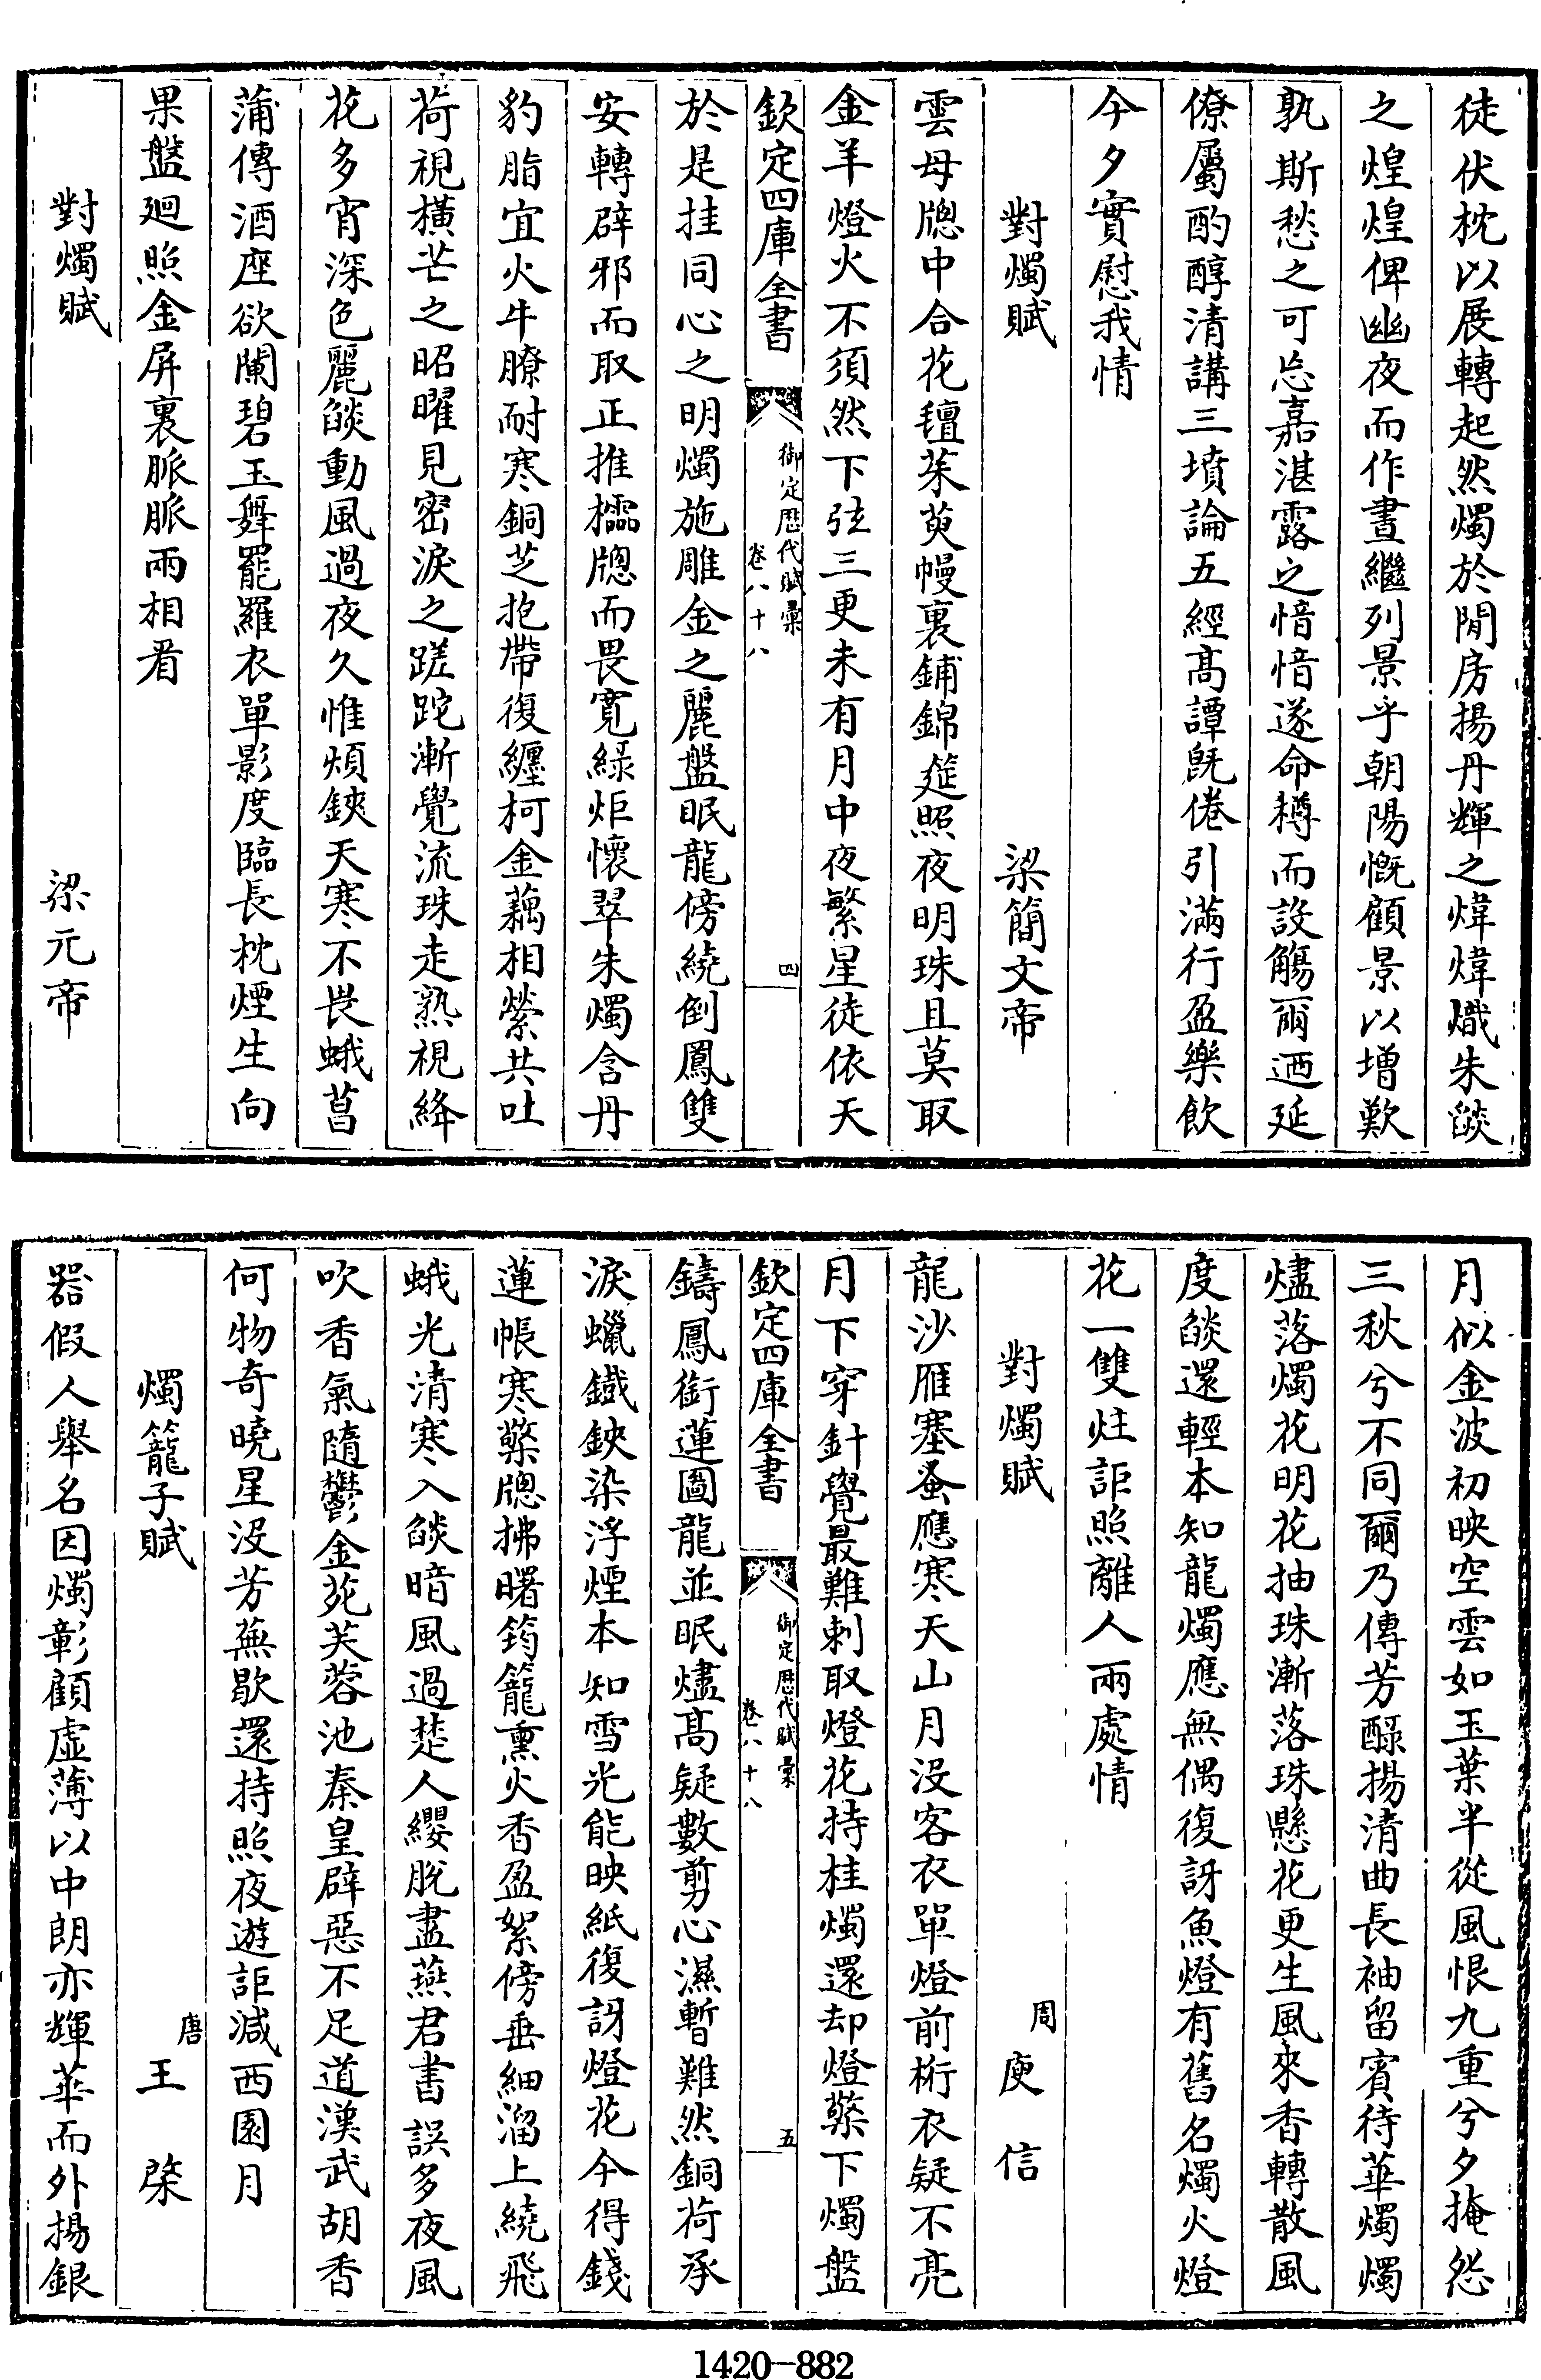 徒伏枕以展轉起然燭於閒房揚丹輝之煒煒熾朱燄
之煌煌俾幽夜而作晝繼列景乎朝陽慨顧景以增歎
孰斯愁之可忘嘉湛露之愔愔遂命樽而設觴爾迺延
僚屬酌醇清講三墳論五經高譚旣倦引滿行盈樂飲
今夕實慰我情
對燭賦 梁簡文帝
雲母牕中合花氊茱萸幔裏鋪錦筵照夜明珠且莫取
金羊燈火不須然下弦三更未有月中夜繁星徒依天
欽定四庫全書 御定歷代賦彙 卷八十八 四
於是挂同心之明燭施雕金之麗盤眠龍傍繞倒鳳雙
安轉辟邪而取正推櫺牕而畏寬綠炬懷翠朱燭含丹
豹脂宜火牛膫耐寒銅芝抱帶復纏柯金藕相縈共吐
荷視橫芒之昭曜見密淚之蹉跎漸覺流珠走熟視絳
花多宵深色麗燄動風過夜久惟煩鋏天寒不畏蛾菖
蒲傳酒座欲闌碧玉舞罷羅衣單影度臨長枕煙生向
果盤迴照金屏裏脈脈兩相看
對燭賦 梁元帝
月似金波初映空雲如玉葉半從風恨九重兮夕掩怨
三秋兮不同爾乃傳芳醁揚清曲長袖留賓待華燭燭
燼落燭花明花抽珠漸落珠懸花更生風來香轉散風
度燄還輕本知龍燭應無偶復訝魚燈有舊名燭火燈
花一雙炷詎照離人兩處情
對燭賦 周 庾信
龍沙雁塞蚤應寒天山月沒客衣單燈前桁衣疑不亮
月下穿針覺最難刺取燈花持桂燭還却燈檠下燭盤
欽定四庫全書 御定歷代賦彙 卷八十八 五
鑄鳳銜蓮圖龍並眠燼高疑數剪心濕暫難然銅荷承
淚蠟鐵鋏染浮煙本知雪光能映紙復訝燈花今得錢
蓮帳寒檠牕拂曙筠籠熏火香盈絮傍垂細溜上繞飛
蛾光清寒入燄暗風過楚人纓脫盡燕君書誤多夜風
吹香氣隨鬱金苑芙蓉池秦皇辟惡不足道漢武胡香
何物奇曉星沒芳蕪歇還持照夜遊詎減西園月
燭籠子賦 唐 王棨
器假人舉名因燭彰顧虛薄以中朗亦輝華而外揚銀
1420-882